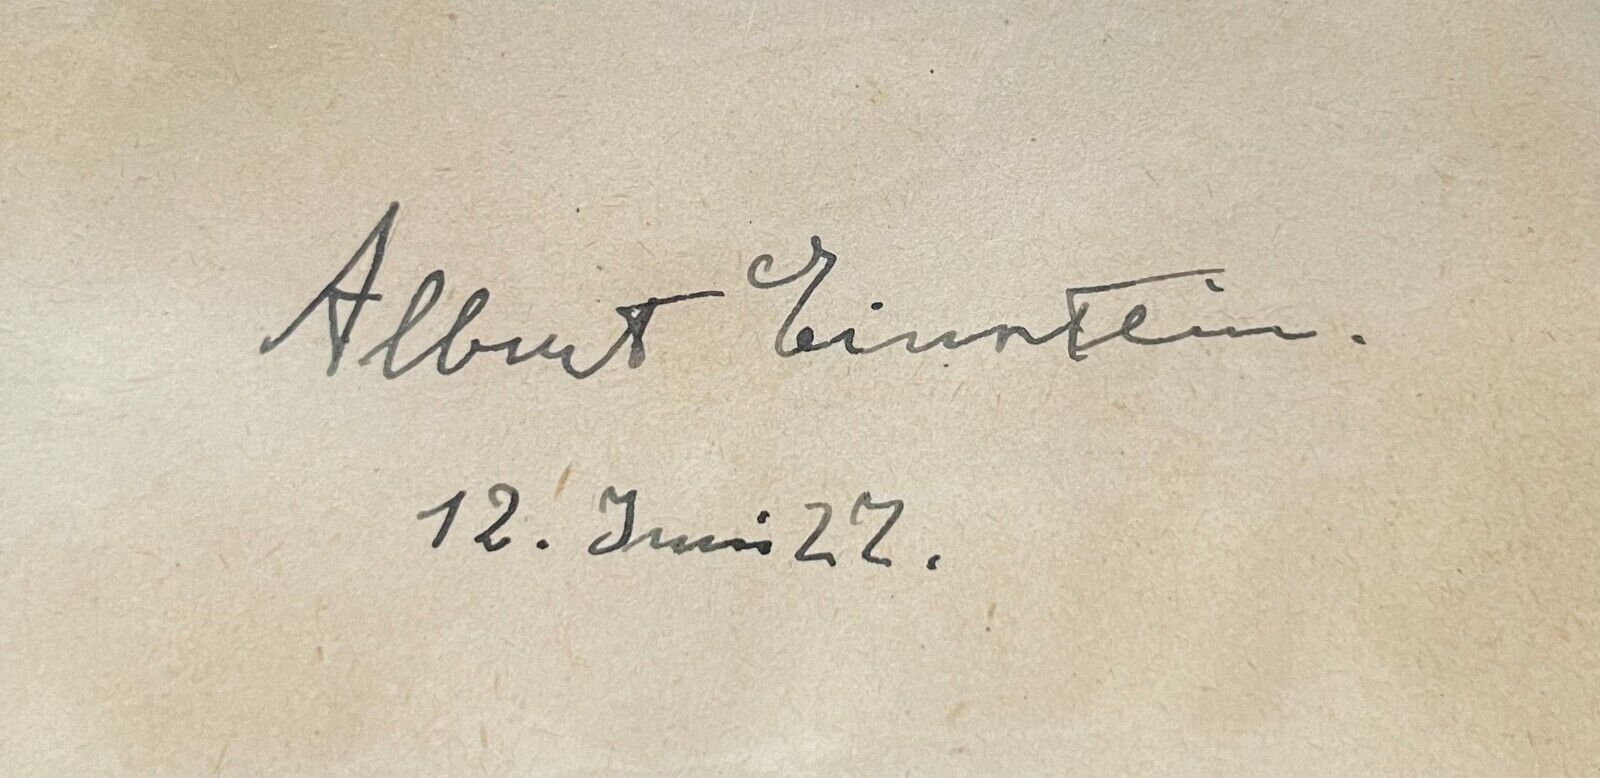 Albert Einstein.
12. Juni 22.